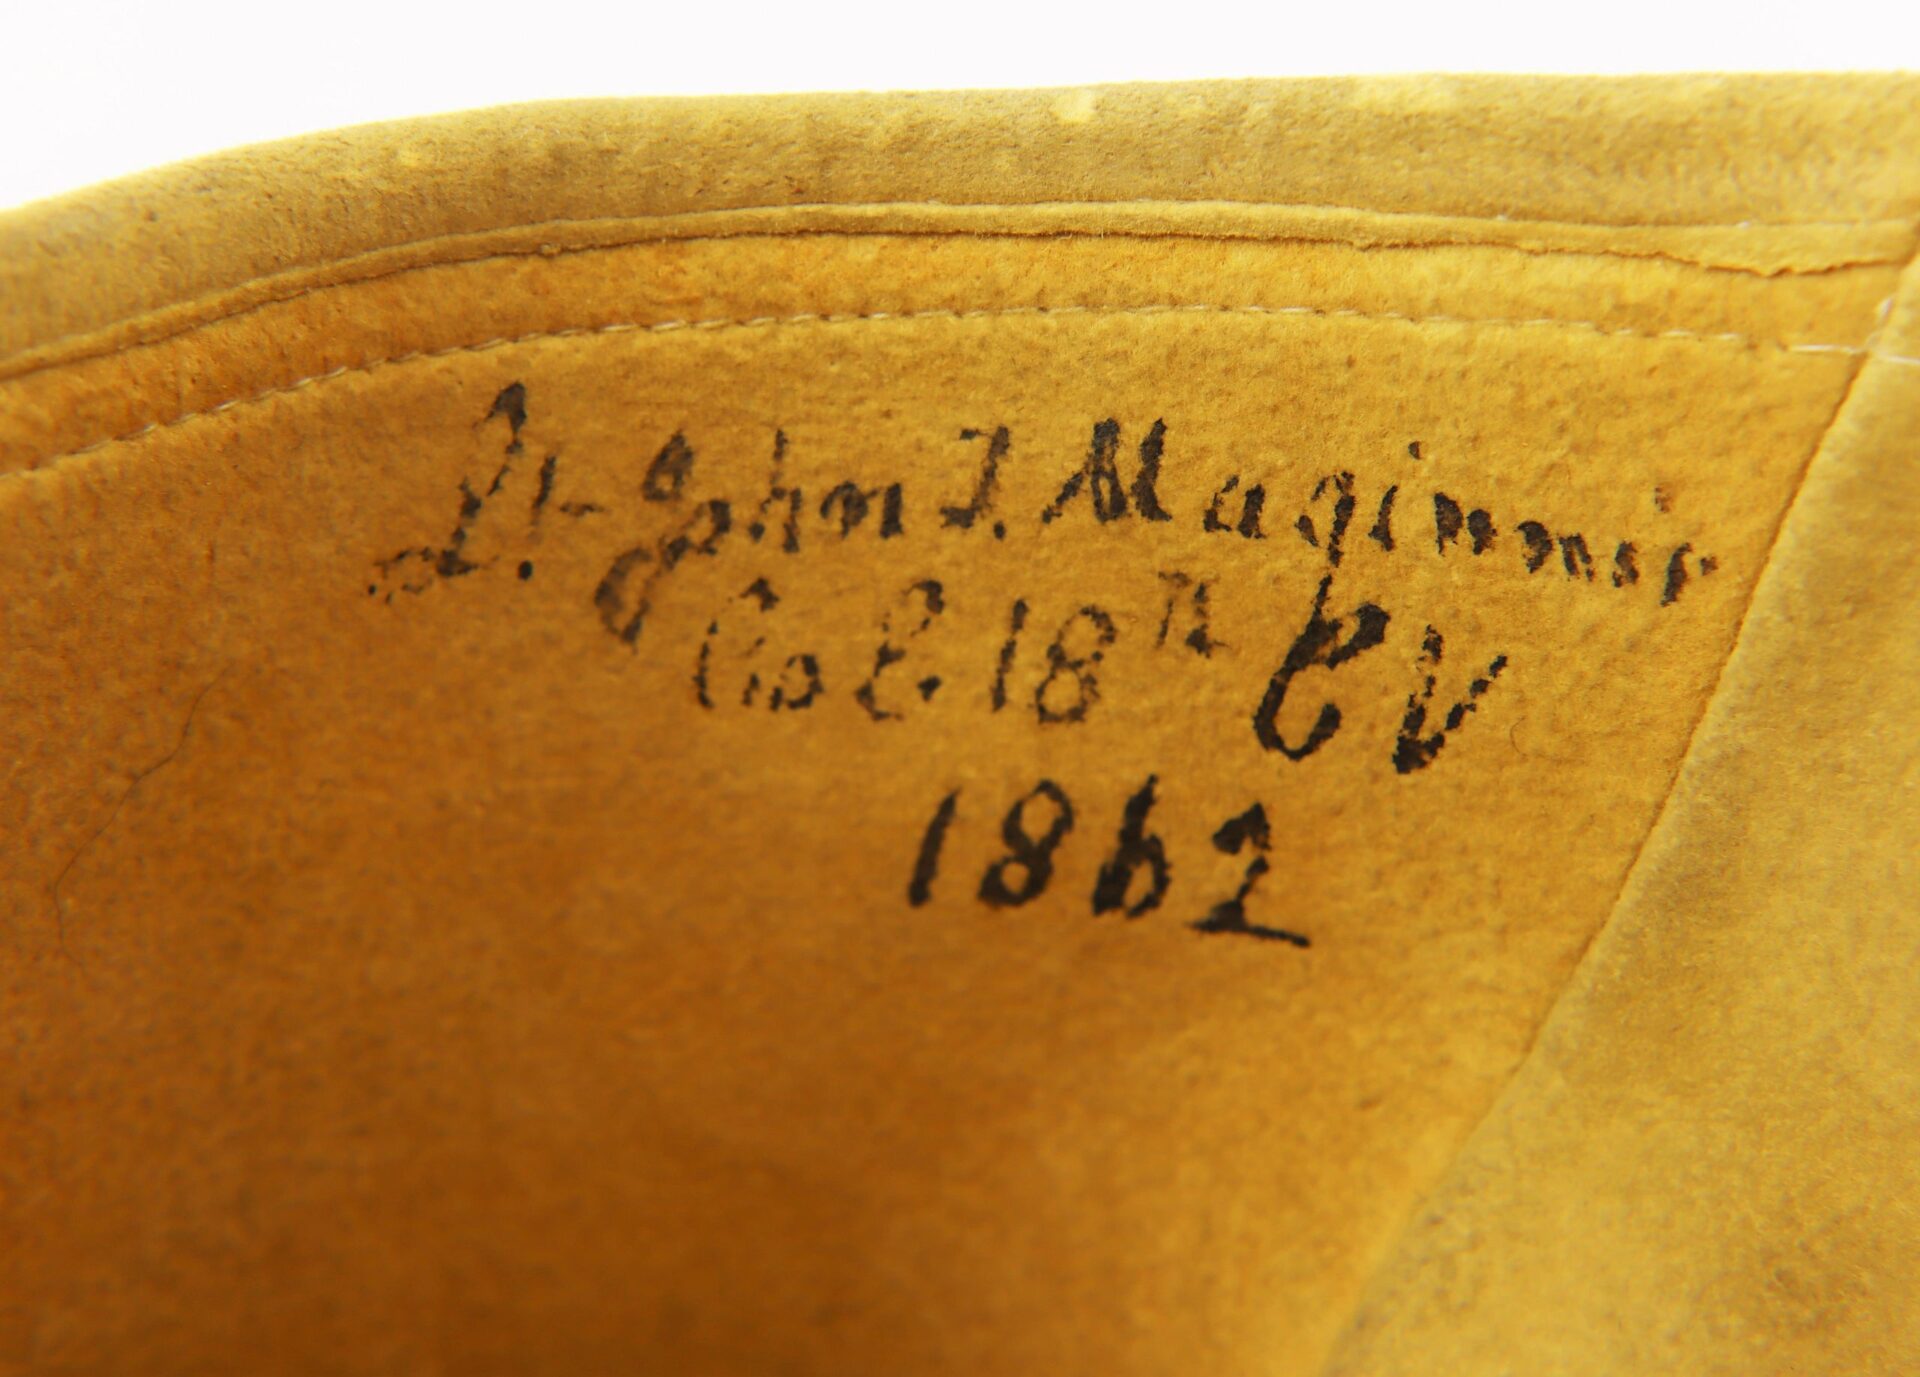 Lt. John J. Maginnis
Co E. 18th CV
1862